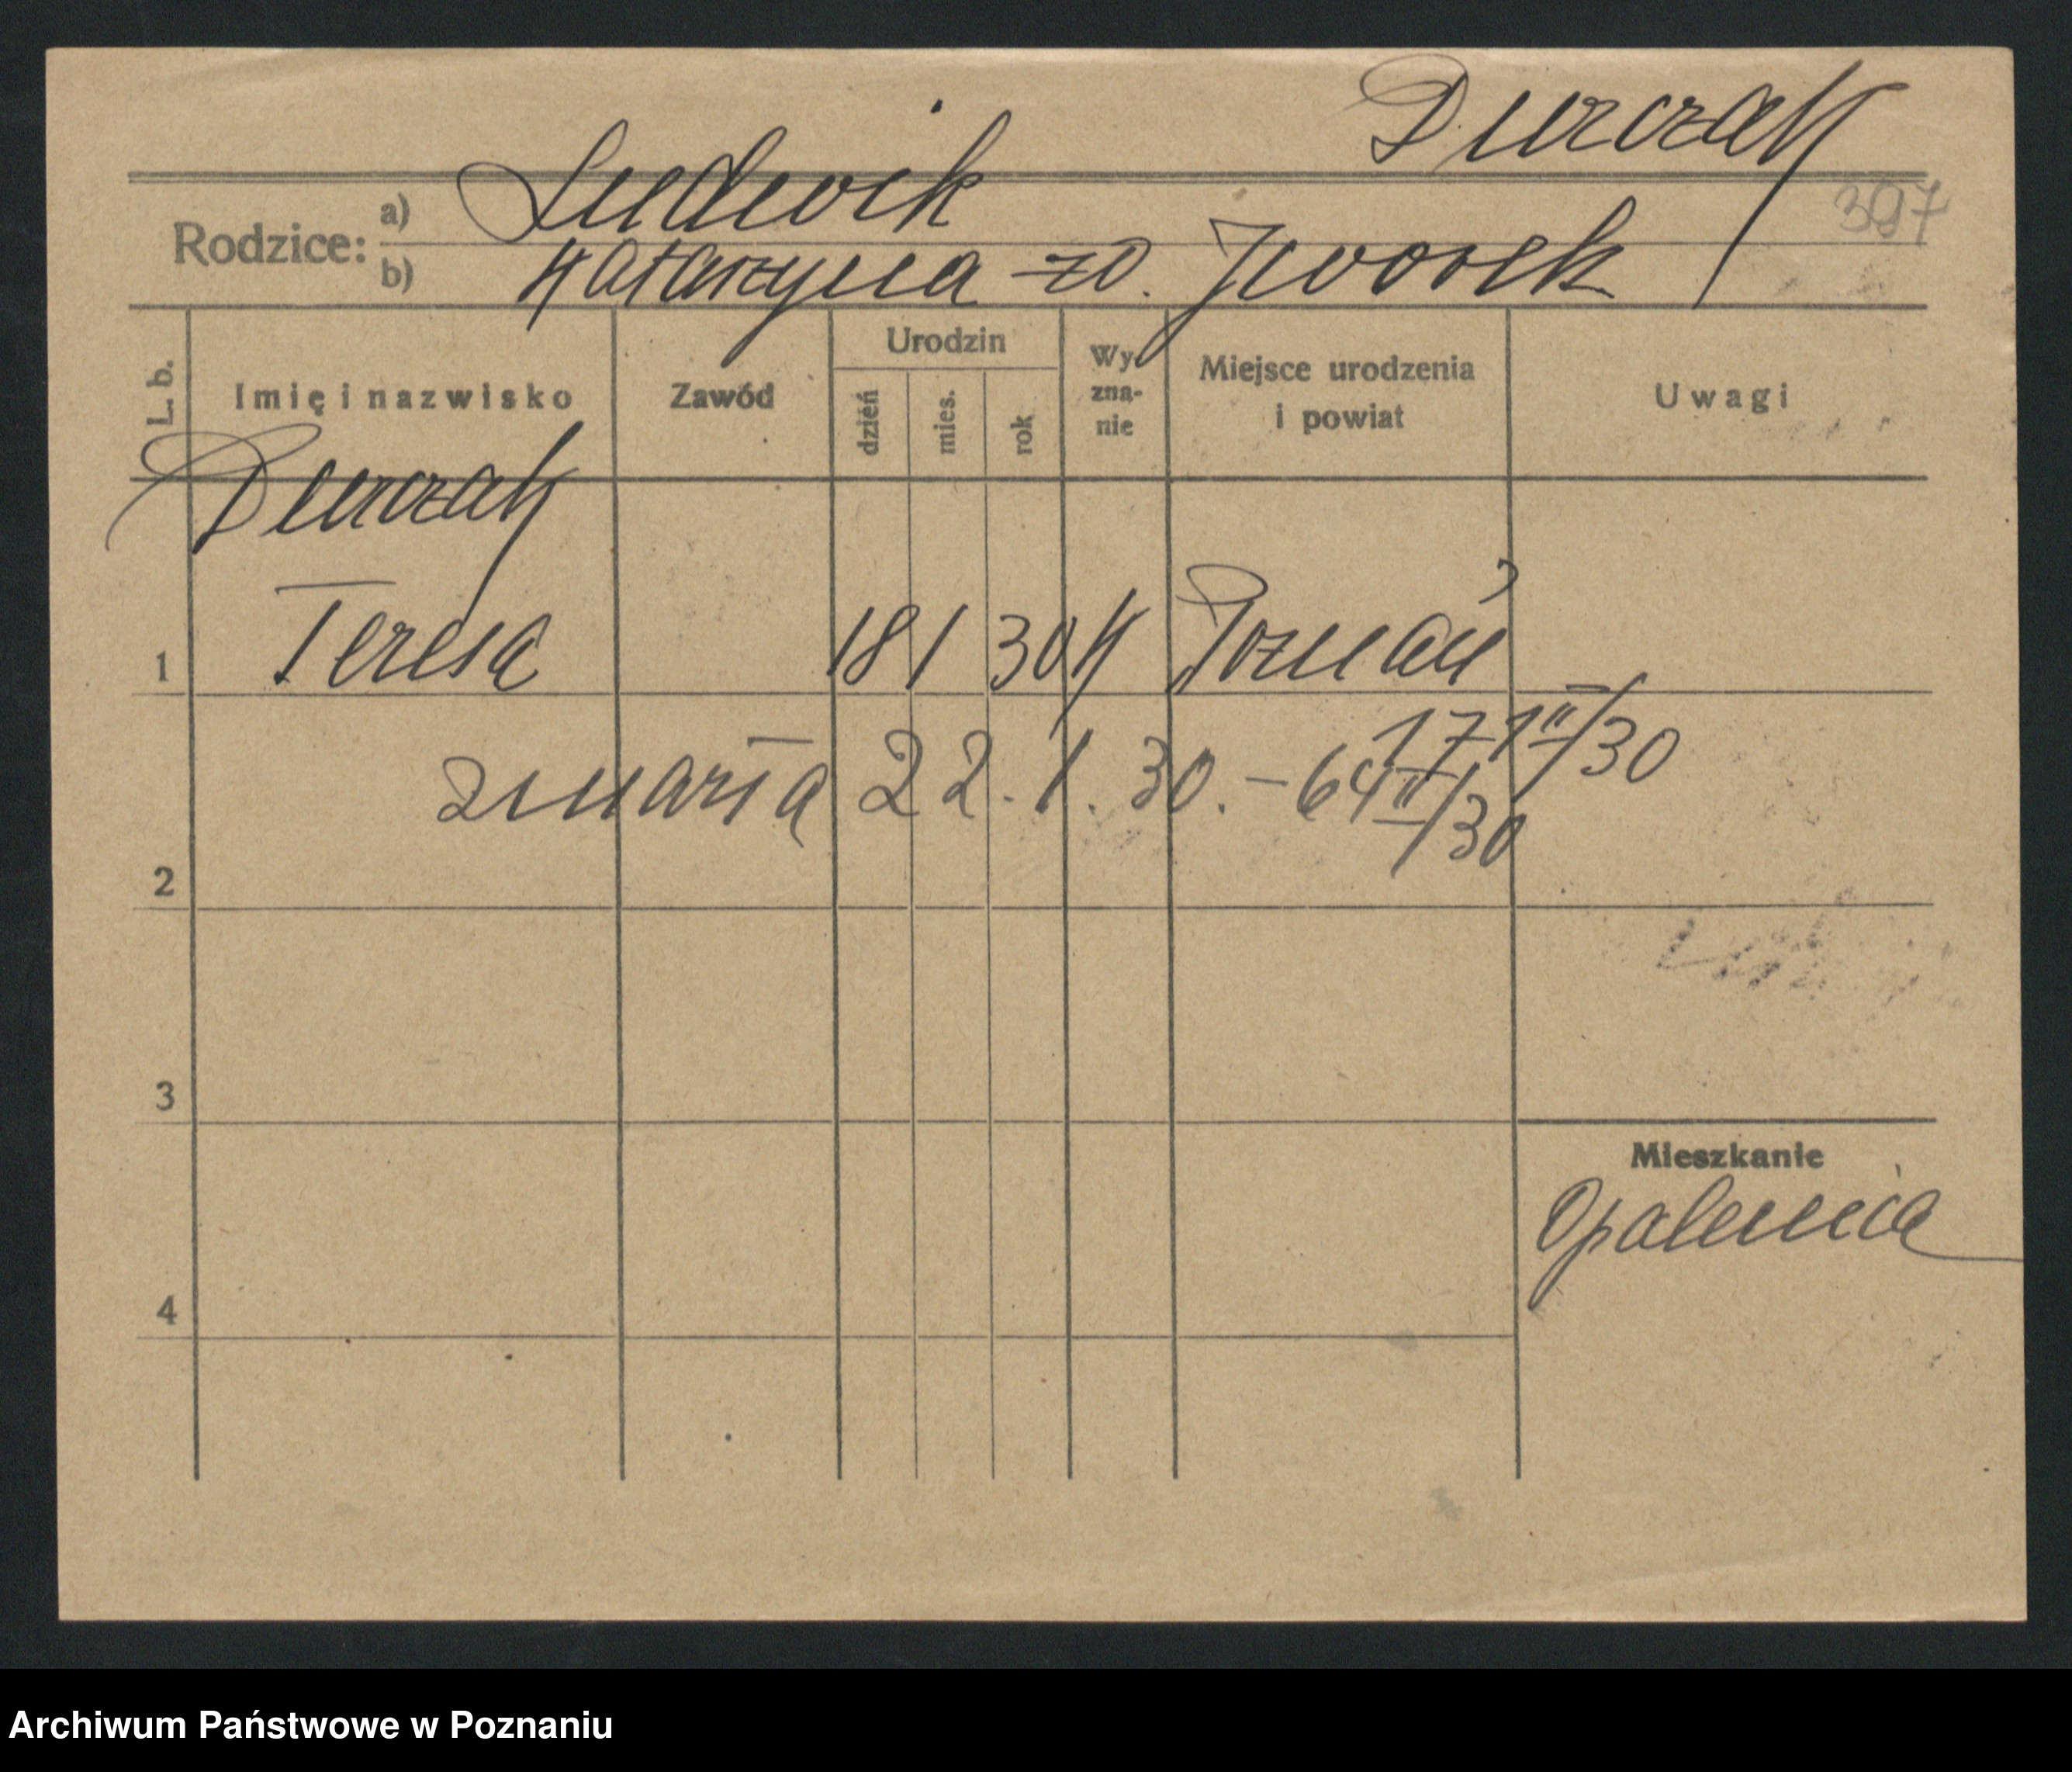 Durczak
397
Rodzice:
a) Ludwik
b) Katarzyna zd.
L. b.
Imię i nazwisko
Zawód
Urodzin
dzień
mies.
rok
Wy-
zna-
nie
Miejsce urodzenia
i powiat
Uwagi
Durczak
1 Teresa 18 1 30 K Poznań
171 II/30
zmarła 22. 1. 30. - 64 II/30
2
3
Mieszkanie
Opalenica
4
Archiwum Państwowe w Poznaniu